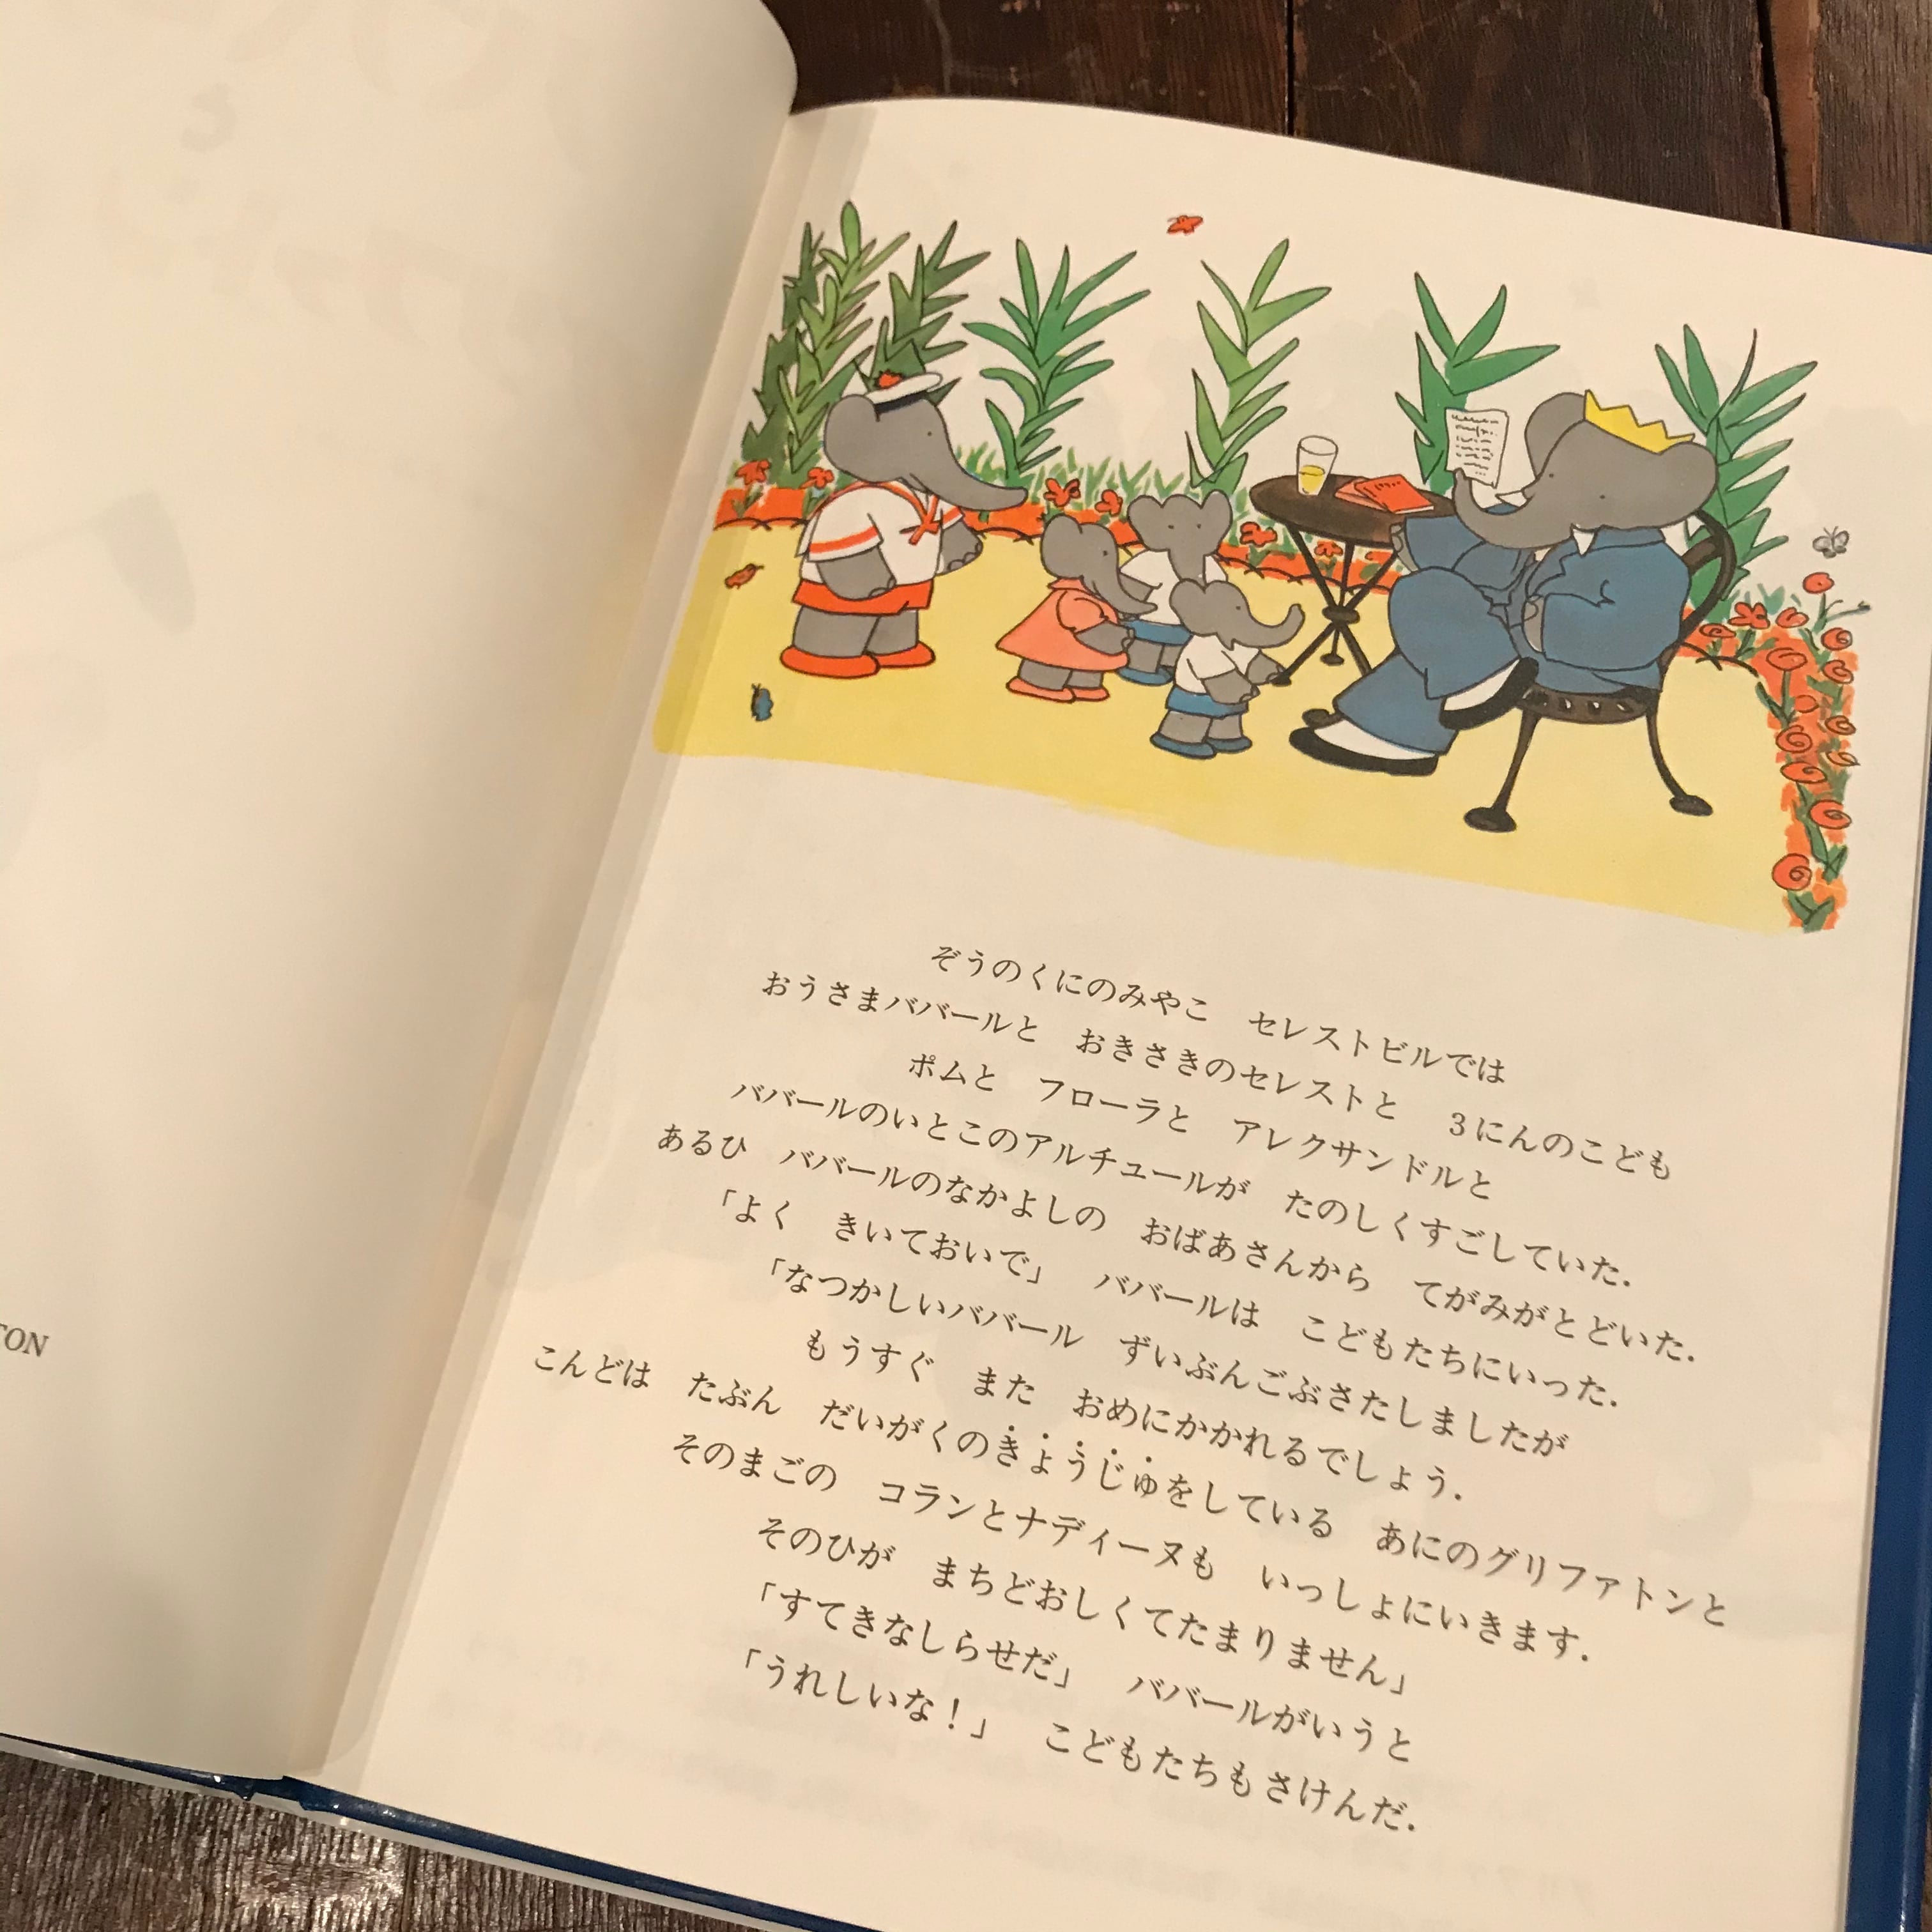 TON
ぞうのくにのみやこ　セレストビルでは
おうさまババールと　おきさきのセレストと　3にんのこども
ポムと　フローラと　アレクサンドルと
ババールのいとこのアルチュールが　たのしくすごしていた．
あるひ　ババールのなかよしの　おばあさんから　てがみがとどいた．
「よく　きいておいで」　ババールは　こどもたちにいった．
「なつかしいババール　ずいぶんごぶさたしましたが
もうすぐ　また　おめにかかれるでしょう．
こんどは　たぶん　だいがくのきょうじゅをしている　あにのグリファトンと
そのまごの　コランとナディーヌも　いっしょにいきます．
そのひが　まちどおしくてたまりません」
「すてきなしらせだ」　ババールがいうと
「うれしいな！」　こどもたちもさけんだ．